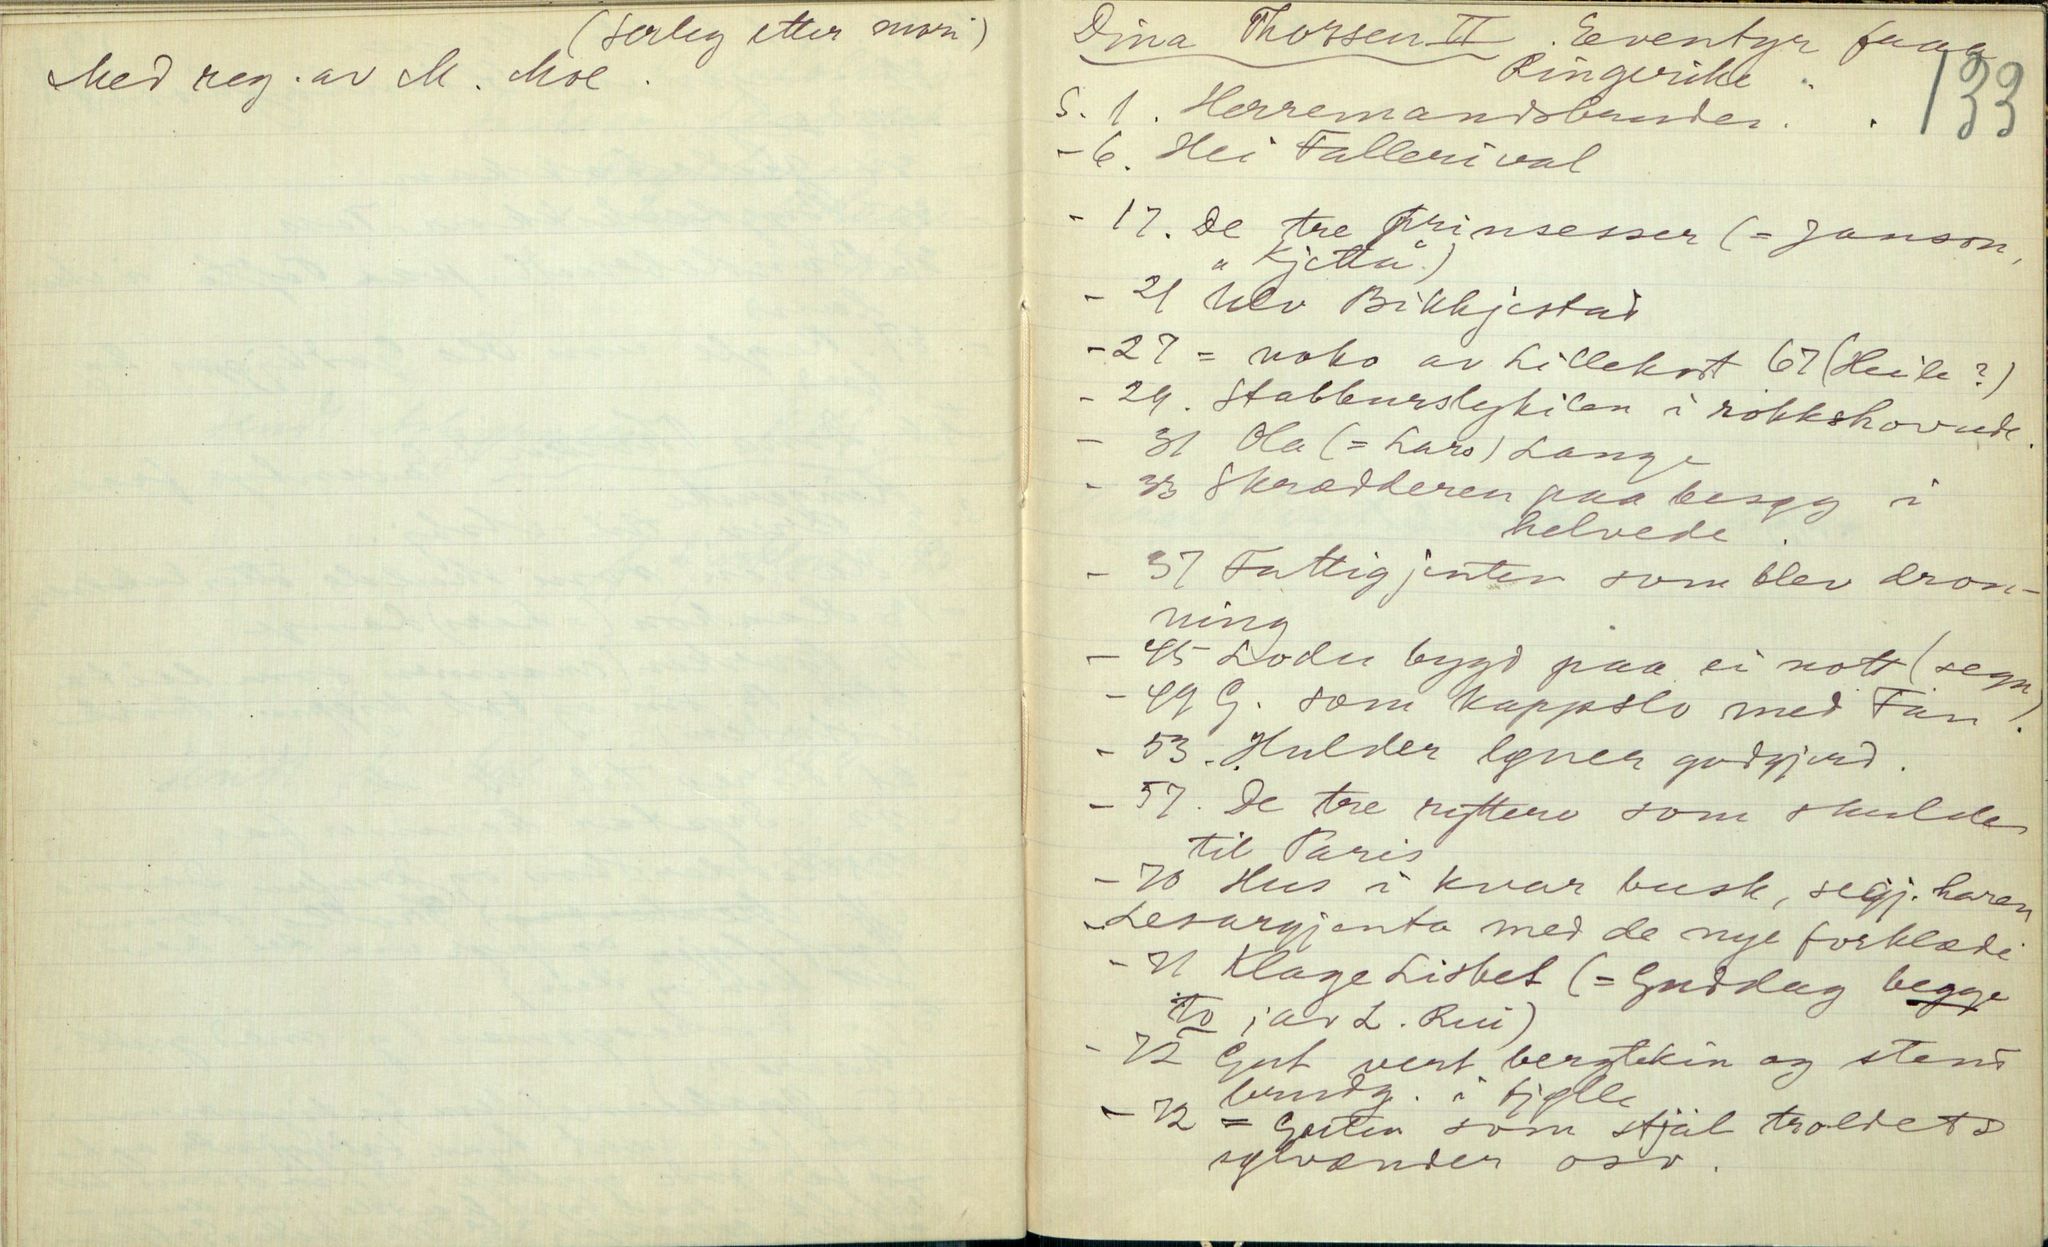 (serleg etter mori)
Med reg. av M. Moe.
Dina Thorsen II. Eventyr fraa
Ringerike.
133
S. 1. Herremandsbruden.
- 6. Hei Fallerival
- 17. De tre prinsesser (= Janson,
"Kjetta")
- 21 Ulv Bikkjestad
- 27 = noko av Lillekort 67 (Heile?)
- 29. Stabburslykilen i rokkshovude.
- 31 Ola (= Lars) Lange
- 33 Skrædderen paa besøg i
helvede.
- 37 Fattigjenten som blev dron-
ning
- 45 Lodu bygd paa ei nott (segn)
- 49 G. som kappslo med Fan.
- 53. Hulder løner godgjerd.
- 57. De tre ryttere som skulde
til Paris
- 70 Hus i kvar busk, segj. haren
- Lesargjenta med de nye forklædi
- 71 Klage Lisbet (= Guddag begge
to, av L. Rui)
- 72 Gut vert bergtekin og stend
brudg. i fjelle
- 72 = Guten som stjal troldets
sylvænder osv.